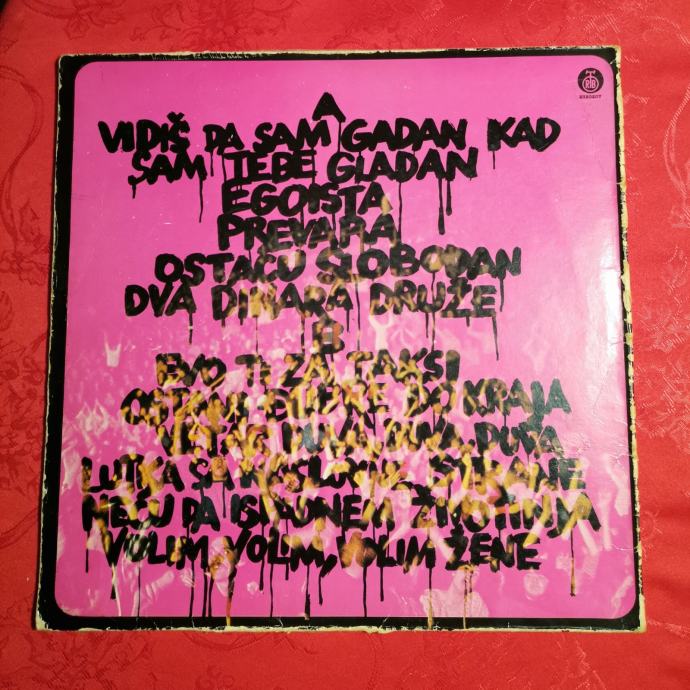 RTB
A
VIDIŠ DA SAM GADAN KAD
SAM TEBE GLADAN
EGOISTA
PREVARA
OSTAĆU SLOBODAN
DVA DINARA DRUŽE
B
EVO TI ZA TAKSI
OSTANI ĐUBRE DO KRAJA
DUVA, DUVA, DUVA
LUTKA SA NASLOVNE STRANE
NEĆU DA ISPADNEM ŽIVOTINJA
VOLIM, VOLIM, VOLIM ŽENE